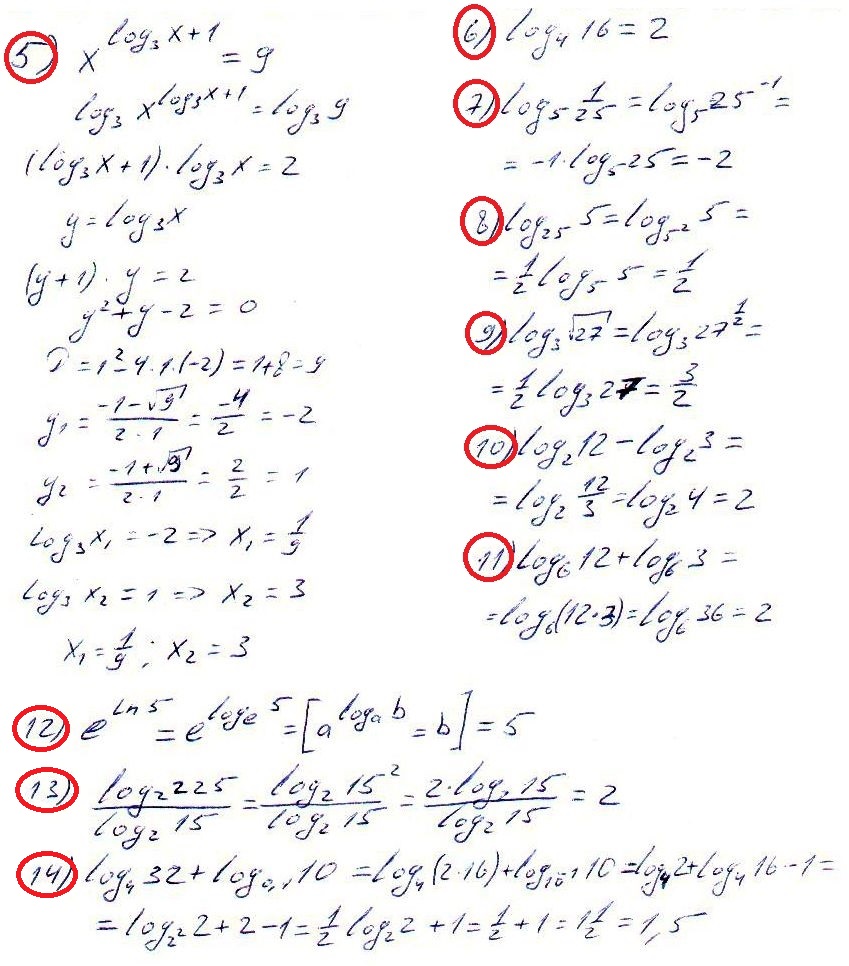 5) x^(log₃x+1) = 9
log₃ x^(log₃x+1) = log₃ 9
(log₃x+1)·log₃x = 2
y = log₃x
(y+1)·y = 2
y²+y-2 = 0
D = 1²-4·1·(-2) = 1+8 = 9
y₁ = (-1-√9)/(2·1) = -4/2 = -2
y₂ = (-1+√9)/(2·1) = 2/2 = 1
log₃x₁ = -2 => x₁ = 1/9
log₃x₂ = 1 => x₂ = 3
x₁ = 1/9 ; x₂ = 3
6) log₄ 16 = 2
7) log₅ 1/25 = log₅ 25⁻¹ =
= -1·log₅ 25 = -2
8) log₂₅ 5 = log_(5²) 5 =
= 1/2 log₅ 5 = 1/2
9) log₃ √27 = log₃ 27^(1/2) =
= 1/2 log₃ 27 = 3/2
10) log₂ 12 - log₂ 3 =
= log₂ 12/3 = log₂ 4 = 2
11) log₆ 12 + log₆ 3 =
= log₆(12·3) = log₆ 36 = 2
12) e^(ln 5) = e^(logₑ 5) = [a^(logₐ b) = b] = 5
13) log₂ 225 / log₂ 15 = log₂ 15² / log₂ 15 = 2·log₂ 15 / log₂ 15 = 2
14) log₄ 32 + log₀,₁ 10 = log₄(2·16) + log_(10⁻¹) 10 = log₄ 2 + log₄ 16 - 1 =
= log_(2²) 2 + 2 - 1 = 1/2 log₂ 2 + 1 = 1/2 + 1 = 1 1/2 = 1,5